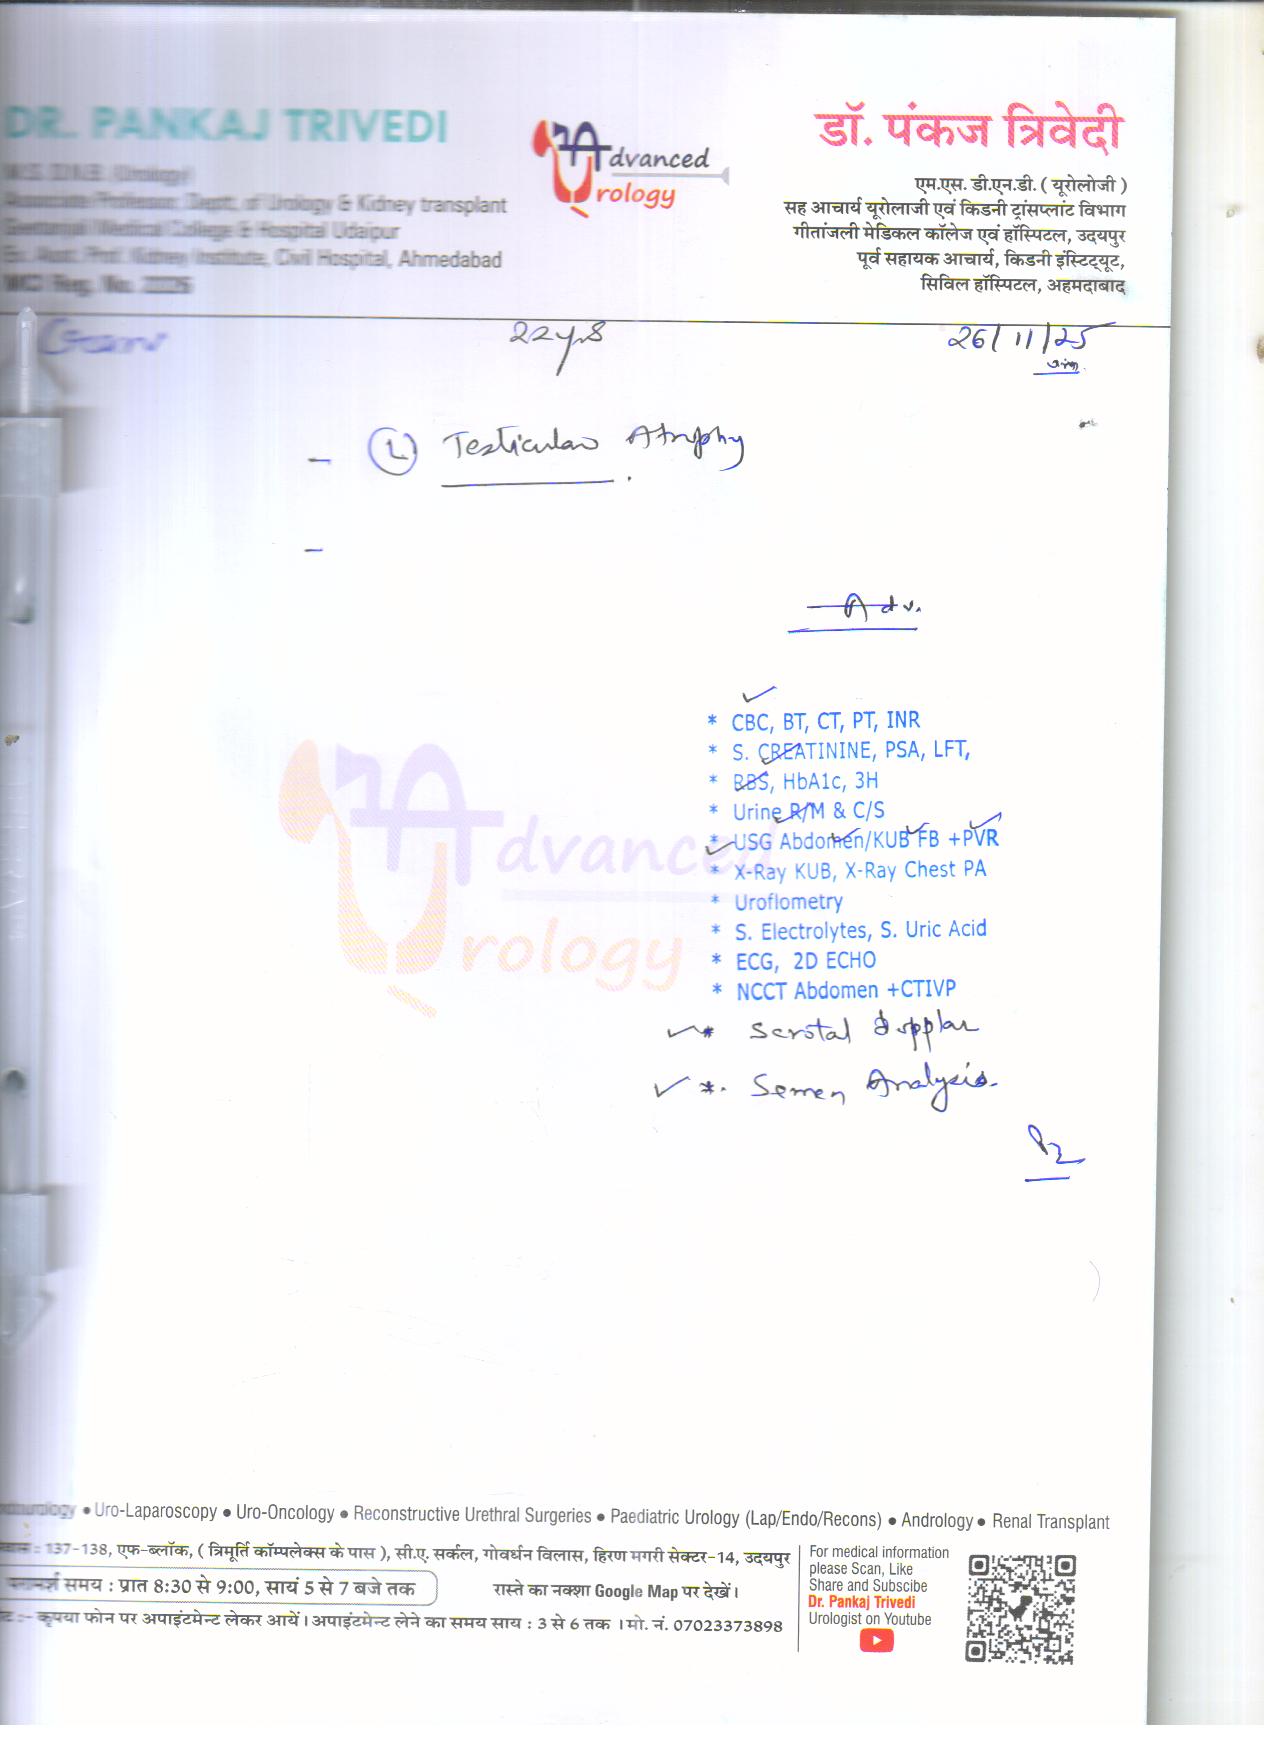 DR. PANKAJ TRIVEDI
M.S. D.N.B. (Urology)
Associate Professor, Deptt. of Urology & Kidney transplant
Geetanjali Medical College & Hospital Udaipur
Ex. Asst. Prof. Kidney Institute, Civil Hospital, Ahmedabad
MCI Reg. No.
Advanced
Urology
डॉ. पंकज त्रिवेदी
एम.एस. डी.एन.डी. ( यूरोलोजी )
सह आचार्य यूरोलाजी एवं किडनी ट्रांसप्लांट विभाग
गीतांजली मेडिकल कॉलेज एवं हॉस्पिटल, उदयपुर
पूर्व सहायक आचार्य, किडनी इंस्टिट्यूट,
सिविल हॉस्पिटल, अहमदाबाद
22yrs
26/11/25
- (L) Testicular Atrophy
-
Adv.
* CBC, BT, CT, PT, INR
* S. CREATININE, PSA, LFT,
* RBS, HbA1c, 3H
* Urine R/M & C/S
* USG Abdomen/KUB FB +PVR
* X-Ray KUB, X-Ray Chest PA
* Uroflometry
* S. Electrolytes, S. Uric Acid
* ECG, 2D ECHO
* NCCT Abdomen +CTIVP
* Scrotal dopplar
* Semen Analysis.
Advanced
Urology
● Uro-Laparoscopy ● Uro-Oncology ● Reconstructive Urethral Surgeries ● Paediatric Urology (Lap/Endo/Recons) ● Andrology ● Renal Transplant
: 137-138, एफ-ब्लॉक, ( त्रिमूर्ति कॉम्पलेक्स के पास ), सी.ए. सर्कल, गोवर्धन विलास, हिरण मगरी सेक्टर-14, उदयपुर
परामर्श समय : प्रात 8:30 से 9:00, सायं 5 से 7 बजे तक
रास्ते का नक्शा Google Map पर देखें।
:- कृपया फोन पर अपाइंटमेन्ट लेकर आयें। अपाइंटमेन्ट लेने का समय साय : 3 से 6 तक । मो. नं. 07023373898
For medical information
please Scan, Like
Share and Subscibe
Dr. Pankaj Trivedi
Urologist on Youtube